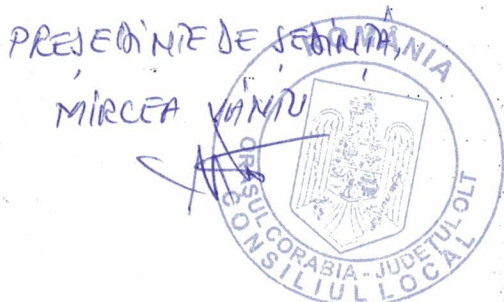 PREȘEDINTE DE ȘEDINȚĂ,
MIRCEA VÂNTU
ROMÂNIA
ORAȘUL CORABIA - JUDEȚUL OLT
CONSILIUL LOCAL